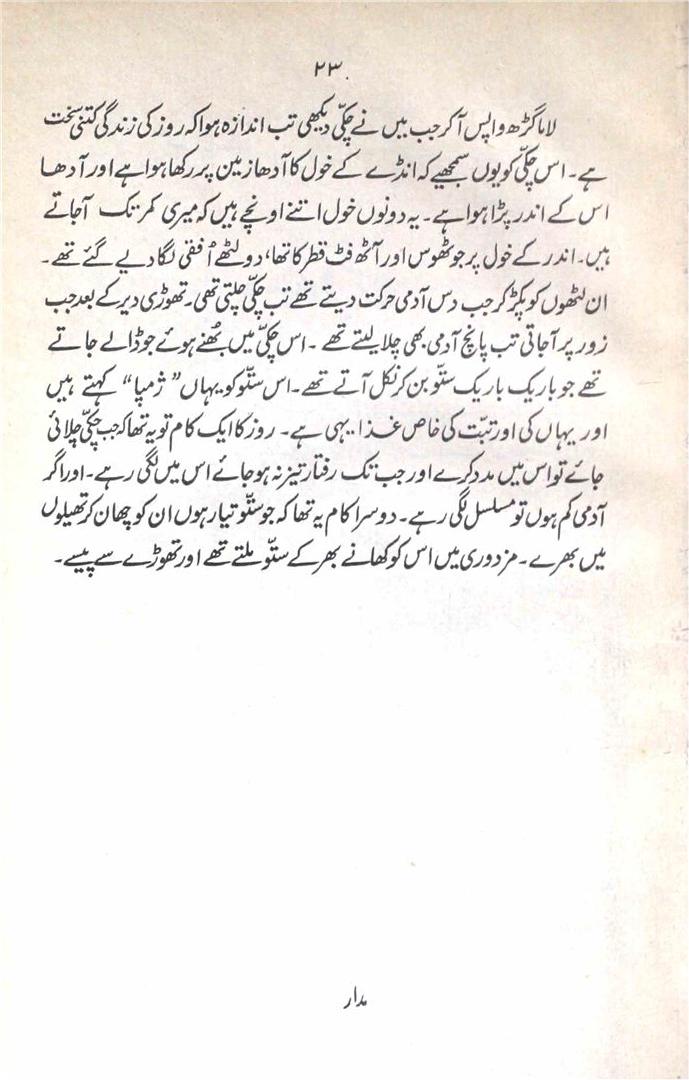 ۲۳
لاما گڑھ واپس آکر جب میں نے چکّی دیکھی تب اندازہ ہوا کہ روز کی زندگی کتنی سخت
ہے۔ اس چکّی کو یوں سمجھیے کہ انڈے کے خول کا آدھا زمین پر رکھا ہوا ہے اور آدھا
اس کے اندر پڑا ہوا ہے۔ یہ دونوں خول اتنے اونچے ہیں کہ میری کمر تک آجاتے
ہیں۔ اندر کے خول پر جو ٹھوس اور آٹھ فٹ قطر کا تھا، دو لٹھے اُفقی لگا دیے گئے تھے۔
ان لٹھوں کو پکڑ کر جب دس آدمی حرکت دیتے تھے تب چکّی چلتی تھی۔ تھوڑی دیر کے بعد جب
زور پر آجاتی تب پانچ آدمی بھی چلا لیتے تھے۔ اس چکّی میں بُھنے ہوئے جو ڈالے جاتے
تھے جو باریک باریک ستّو بن کر نکل آتے تھے۔ اس ستّو کو یہاں ”ژمپا“ کہتے ہیں
اور یہاں کی اور تبّت کی خاص غذا یہی ہے۔ روز کا ایک کام تو یہ تھا کہ جب چکّی چلائی
جائے تو اس میں مدد کرے اور جب تک رفتار تیز نہ ہوجائے اس میں لگی رہے۔ اور اگر
آدمی کم ہوں تو مسلسل لگی رہے۔ دوسرا کام یہ تھا کہ جو ستّو تیار ہوں ان کو چھان کر تھیلوں
میں بھرے۔ مزدوری میں اس کو کھانے بھر کے ستّو ملتے تھے اور تھوڑے سے پیسے۔
مدار